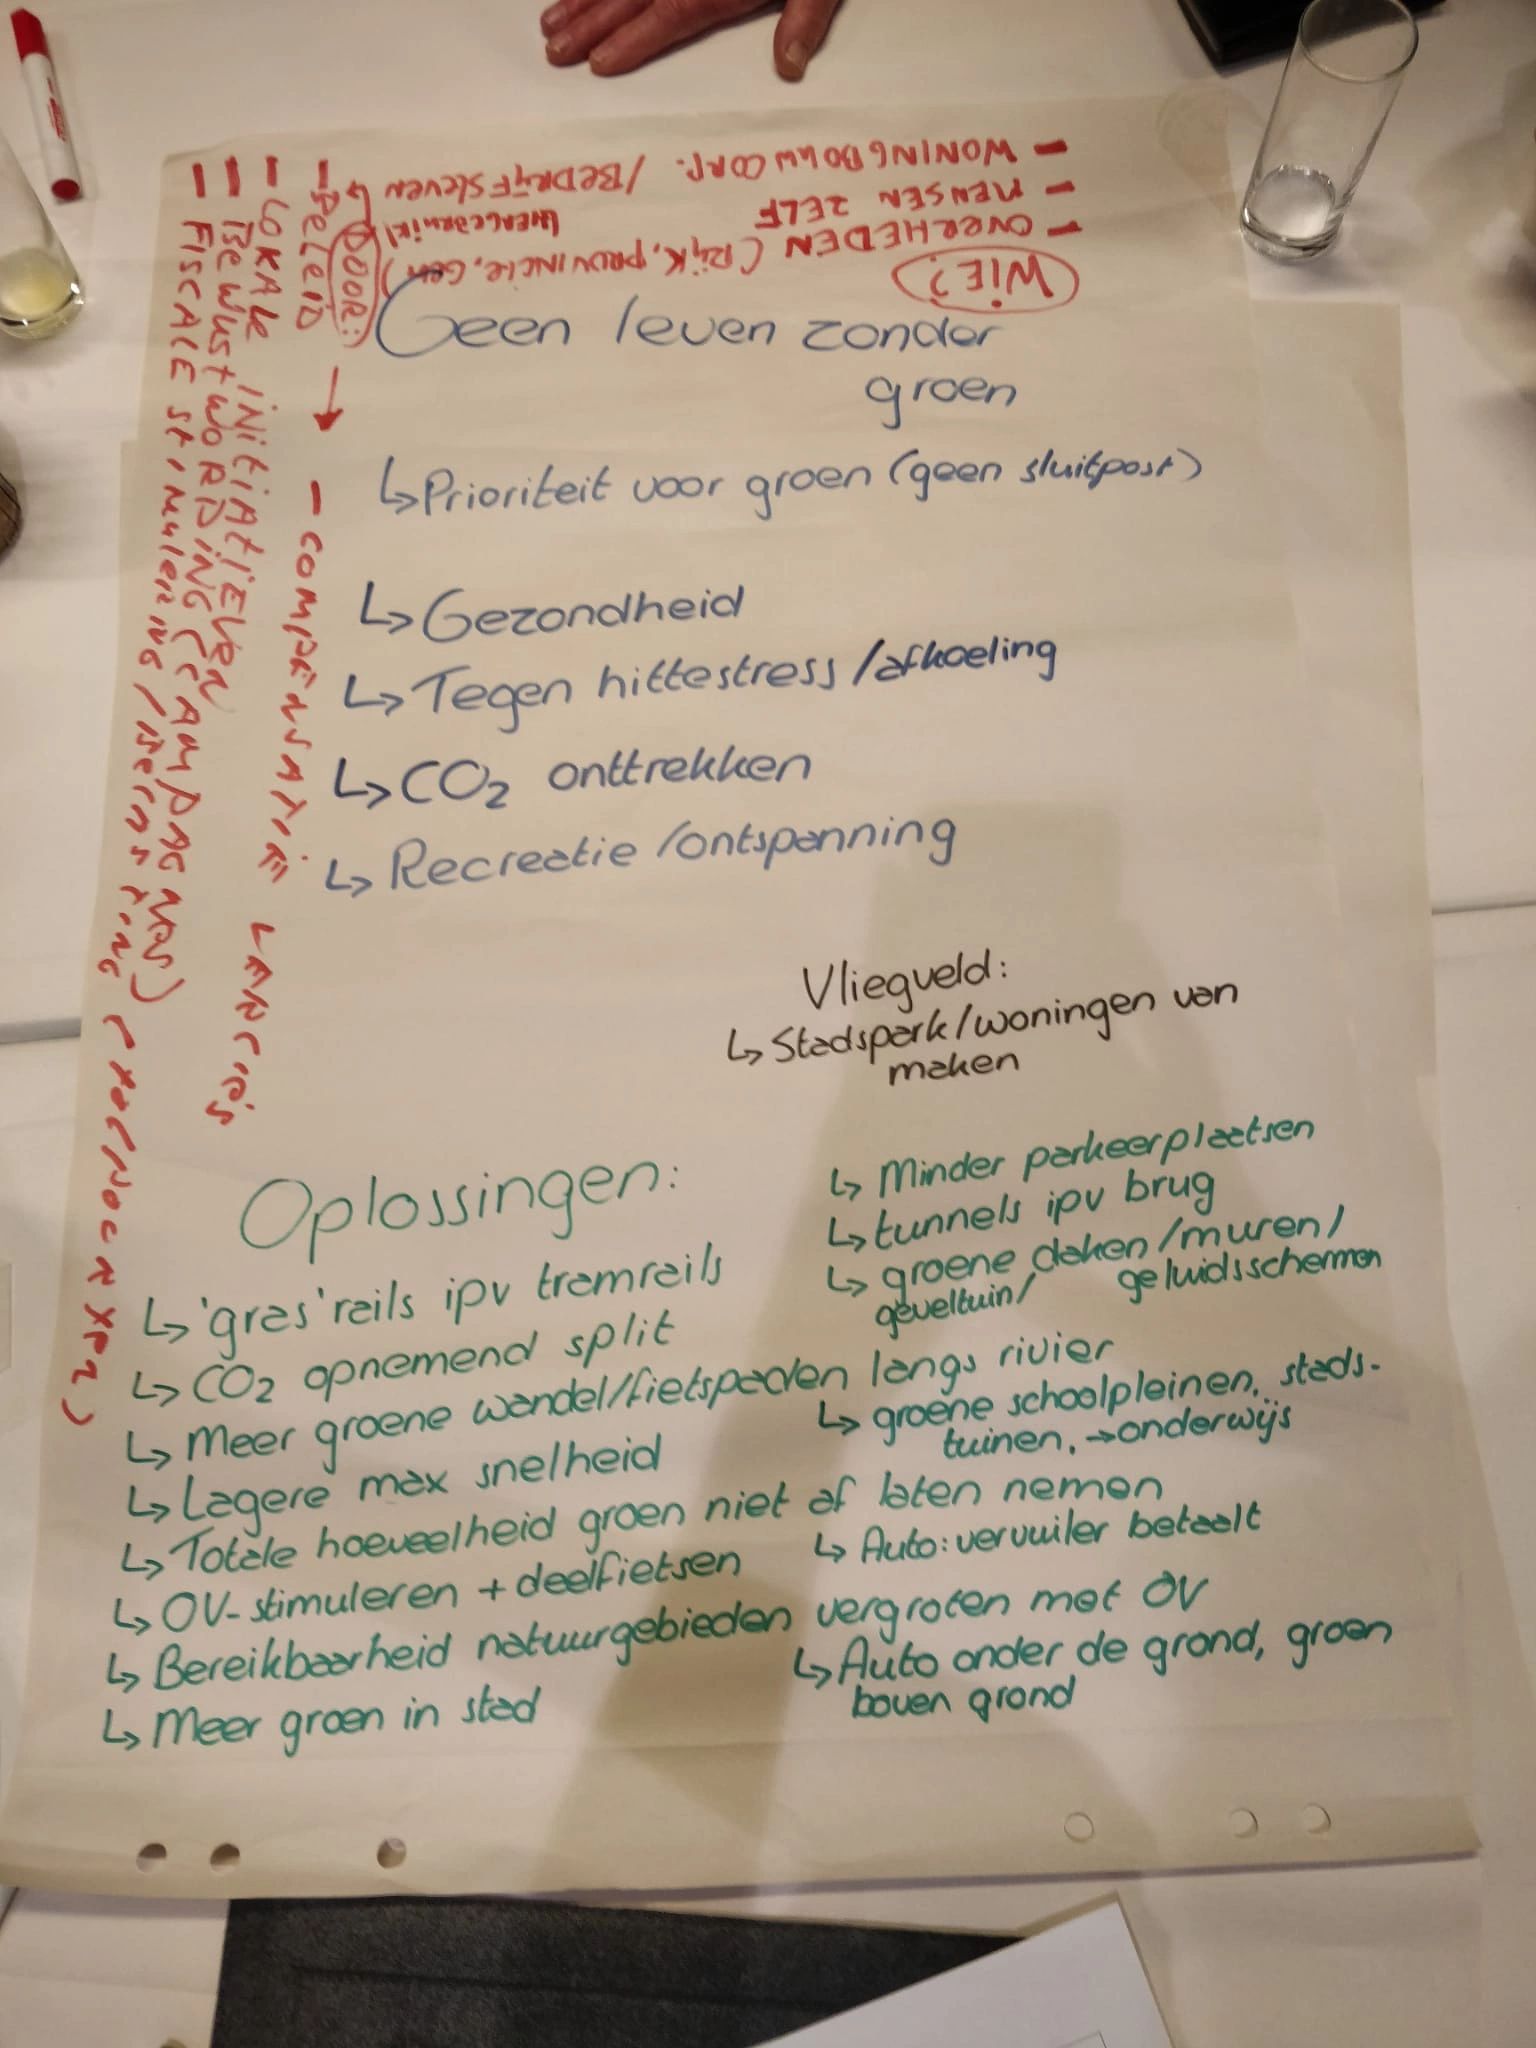 Geen leven zonder
groen
↳ Prioriteit voor groen (geen sluitpost)
↳ Gezondheid
↳ Tegen hittestress/afkoeling
↳ CO2 onttrekken
↳ Recreatie/ontspanning
Vliegveld:
↳ Stadspark/woningen van
maken
Oplossingen:
↳ 'gras'rails ipv tramrails
↳ CO2 opnemend split
↳ Meer groene wandel/fietspaden langs rivier
↳ Lagere max snelheid
↳ Totale hoeveelheid groen niet af laten nemen
↳ OV-stimuleren + deelfietsen
↳ Bereikbaarheid natuurgebieden vergroten met OV
↳ Meer groen in stad
↳ Minder parkeerplaatsen
↳ tunnels ipv brug
↳ groene daken/muren/
geveltuin/ geluidsschermen
↳ groene schoolpleinen, stads-
tuinen. → onderwijs
↳ Auto: vervuiler betaalt
↳ Auto onder de grond, groen
boven grond
WIE?
- OVERHEDEN (RIJK, PROVINCIE, GEM)
- MENSEN ZELF
- WONINGBOUWCORP. /BEDRIJFSLEVEN
DOOR:
- BELEID → - COMPENSATIE
- LOKALE INITIATIEVEN
- BEWUSTWORDING (CAMPAGNES)
- FISCALE STIMULERING/BELASTING